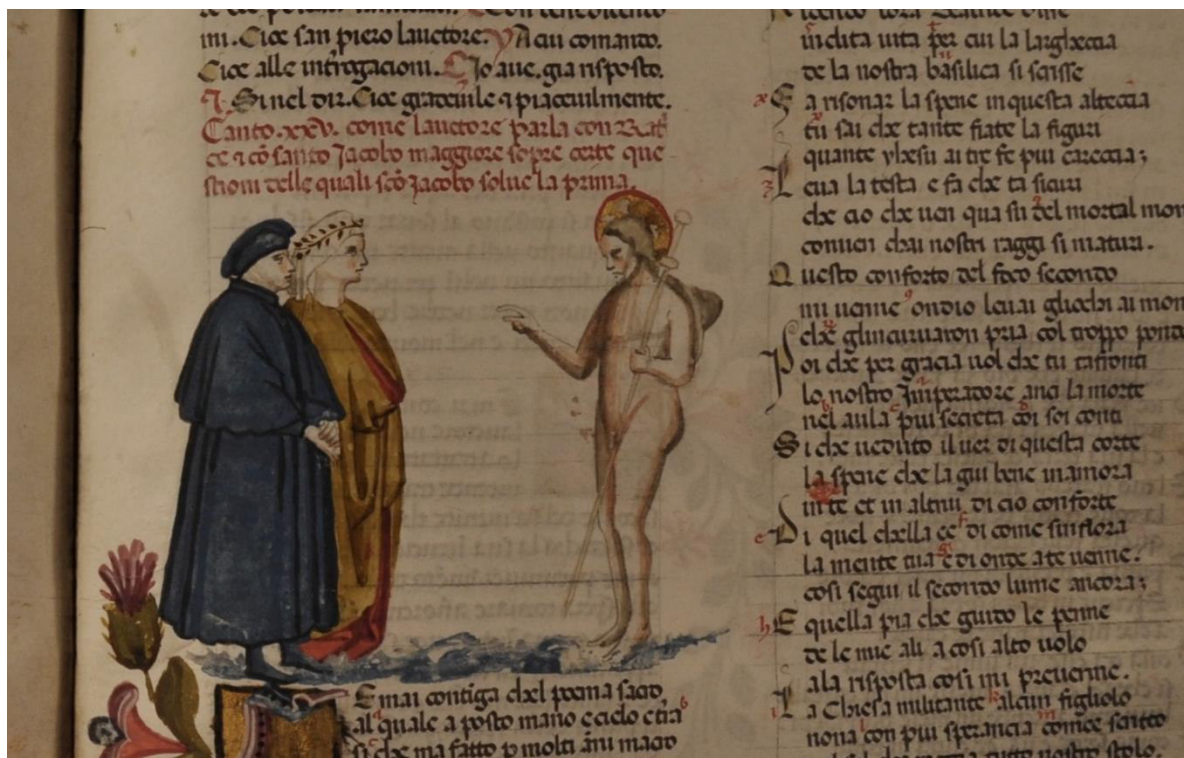 mi. Cioe san piero lauctore. A cui comando.
Cioe alle introgacioni. Io aue. gia risposto.
Si nel dir. Cioe gratevile e piacevilmente.
Canto .xxv. come lauctore parla con Beat
ce e cō santo Jacobo maggiore sopre certe que
stioni delle quali scō Jacobo solue la prima.
E mai contiga chel poema sacro
al quale a posto mano e cielo e tra
si che ma fatto p molti āni macro
inclita uita per cui la larghecia
de la nostra basilica si scrisse
Fa risonar la spene in questa altecia
tu sai che tante fiate la figuri
quante yhesu ai tre fe piu carecia;
Leua la testa e fa che ta sicuri
che cio che uen qua su del mortal mon
conuen chai nostri raggi si maturi.
Questo conforto del foco secondo
mi uenne ondio leuai gliochi ai mon
che glincuruaron pria col troppo pond
Poi che per gracia uol che tu taffronti
lo nostro Imperadore anci la morte
nel aula piu secreta coi soi conti
Si che ueduto il uer di questa corte
la spene che la giu bene inamora
in te et in altrui di cio conforte
Di quel chella ee di come sinflora
la mente tua e di onde a te uenne.
cosi segui il secondo lume ancora;
E quella pia che guido le penne
de le mie ali a cosi alto uolo
a la risposta cosi mi preuenne.
La Chiesa militante alcun figliolo
nona con piu sperancia come scritto